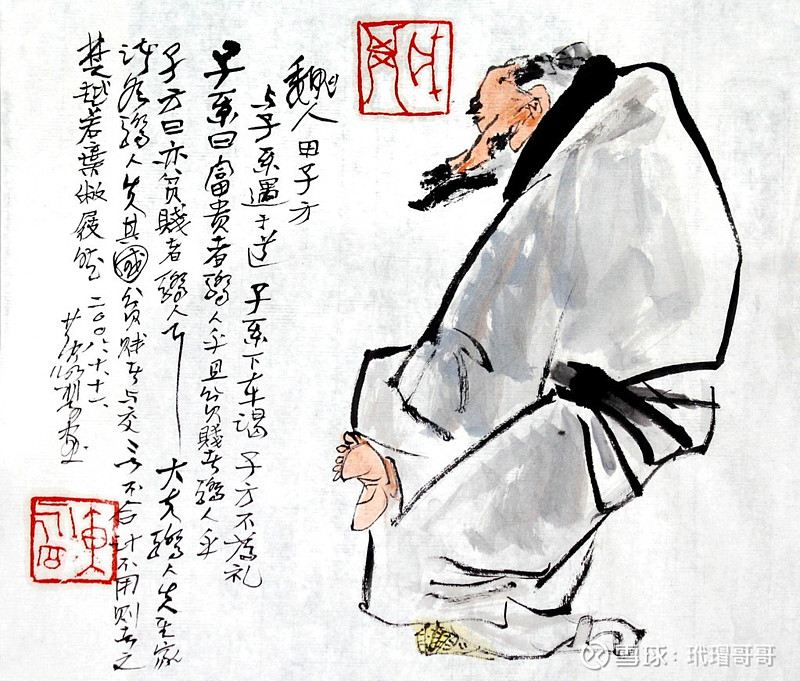 魏人田子方
与子系遇于道 子系下车谒 子方不为礼
子系曰富贵者骄人乎且贫贱者骄人乎
子方曰亦贫贱者骄人 大夫骄人失其家
诸侯骄人失其国贫贱者与交 言不合计不用则去之
楚越若弃敝屣然 二〇〇八十十一
雪球：玳瑁哥哥